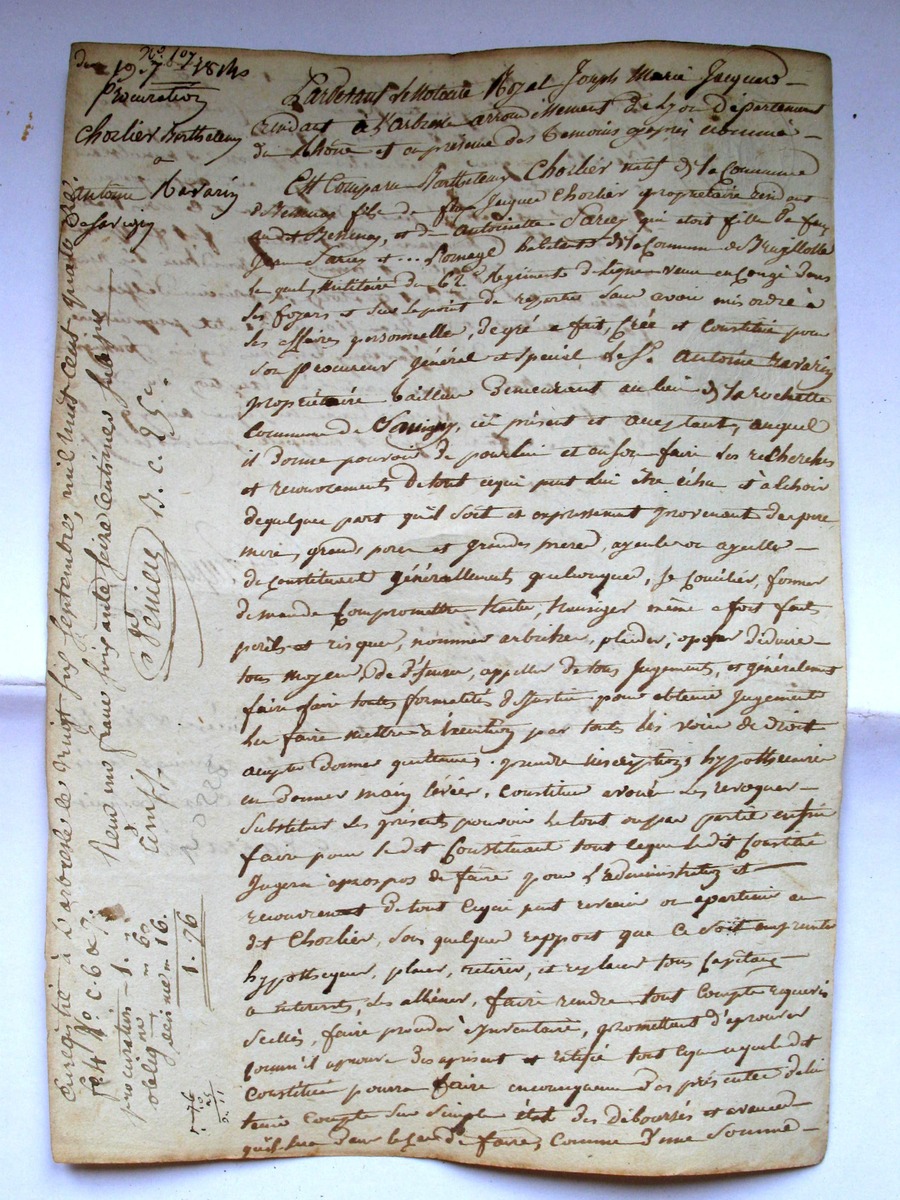 No. 107
du 19 7bre 1814
Procuration
Chorlier Barthelemy
a
Antoine Ravarin
de Savigny
Pardevant le Notaire Royal Joseph Marie Jacquard
Residant à l'Arbresle arrondissement de Lyon Département
du Rhône et en presence des Temoins cy après nommé
Est Comparu Barthelemy Chorlier natif de la Commune
de Bessenay fils de feu Jacques Chorlier propriétaire residant
au dit Bessenay, et de Antoinette Sarcey qui etoit fille de feu
Jean Sarcey et ... Pomeyl habitants de la Commune de Brugillolle
le quel Militaire du 62e Regiments de ligne venu en Congé dans
ses foyers et sur le point de repartir sans avoir mis ordre à
ses affaires personnelle, de gré a fait, Créé et Constitué pour
son procureur général et special le Sr Antoine Ravarin
propriétaire demeurant au lieu de la rochette
Commune de Savigny, icy présent et acceptant, auquel
il donne pouvoir de pour lui et en son faire les recherches
et recouvrements de tout cequi peut lui être échu et a échoir
de quelque part qu'il soit et expressement provenant de pere
mere, grands peres et grandes meres, ayeule ou ayeulle
du Constituant généralement quelconque, se Concilier, former
demande Compromettre traiter, transiger même a fort faits
perils et risque, nommer arbitre, plaider, opposer déduire
tous moyens de deffense, appeller de tous Jugements, et généralement
faire faire toute formalités de Justice pour obtenir Jugement
Les faire mettre à Execution par toute les voies de droit
accepter donner quittances, prendre inscriptions hypothecaire
en donner main levée, Constituer avoué Les revoquer
substituer les présents pouvoir le tout ou par partie enfin
faire pour le dit Constituant tout ceque le dit Constitué
Jugera à propos de faire pour L'administration et
recouvrement de tout cequi peut revenir ou apartenir au
dit Chorlier, sous quelque rapport que ce soit emprunter
hypothequer, placer, retirer, et replacer tous Capitaux
a interests, les alliéner, faire rendre tout Compte requerir
Scellés, faire proceder à Inventaire, promettant d'aprouver
comme il aprouve des apresent et ratifié tout ceque le dit
Constitué pourra faire en consequence des présentes de lui
tenir Compte sur simple état des deboursés et avances
qu'il sera dans le cas de faire, Comme d'une somme
Enregistré à L'arbresle le vingt six septembre, mil huit cent quatorze
f° 44 V° C. 6 & 7.
Reçu un franc soixante seize centimes subvention
comprise
D. C. 25c
procuration — 1. "
obligation — " 60
decime — " 16.
1. 76